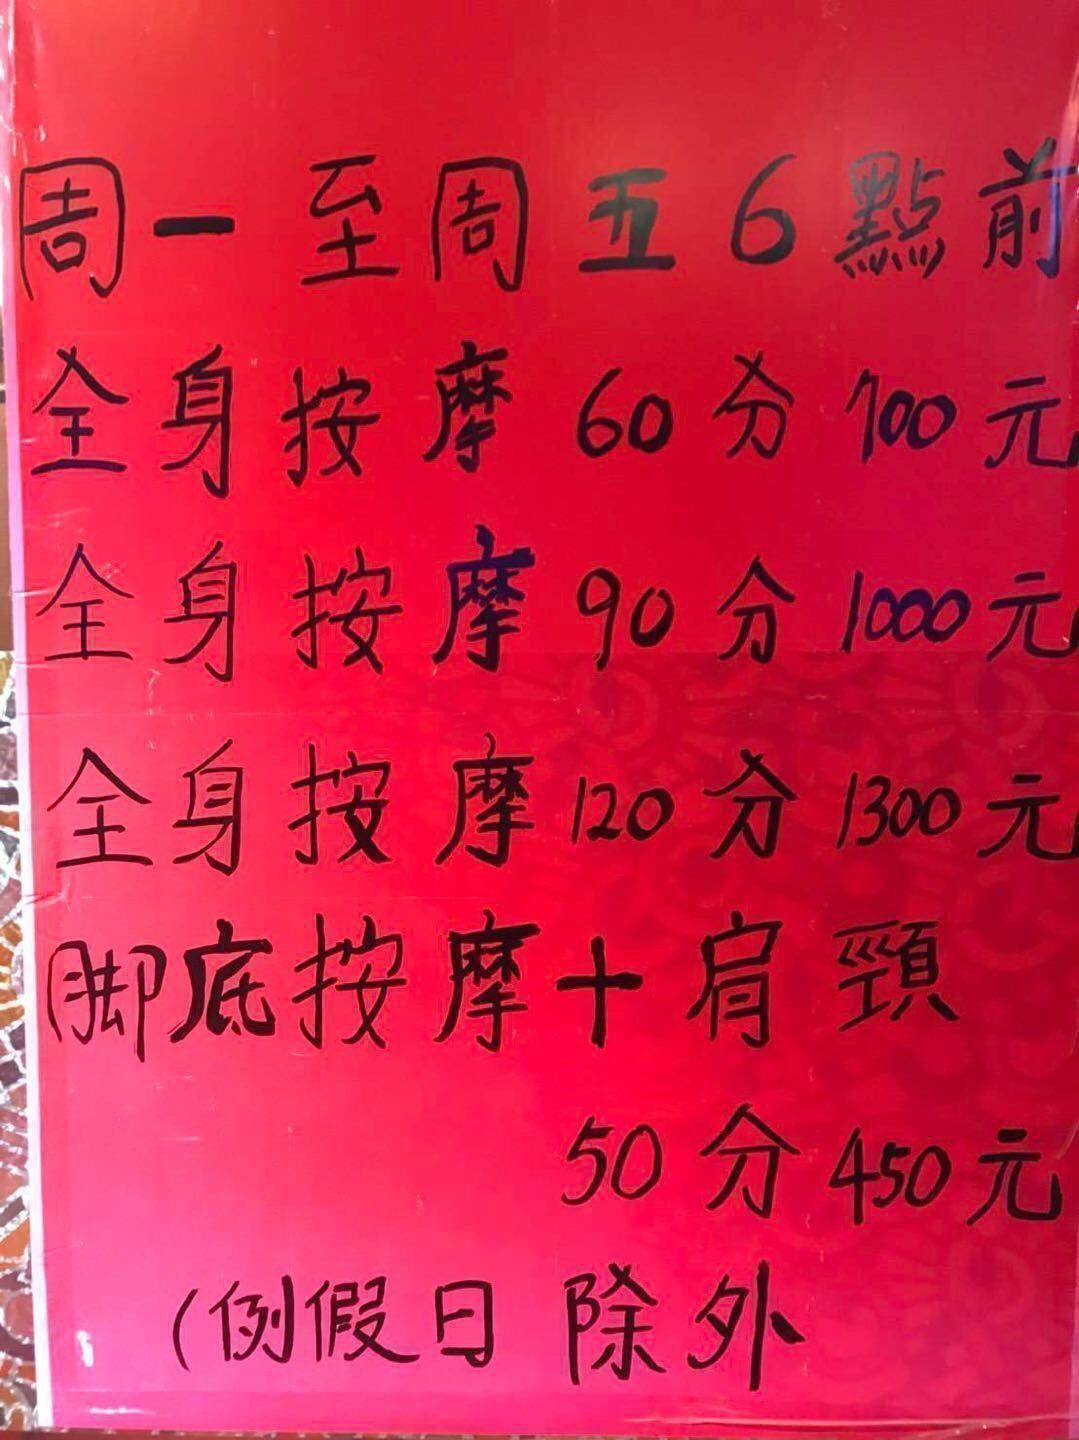 周一至周五6點前
全身按摩60分700元
全身按摩90分1000元
全身按摩120分1300元
脚底按摩+肩頸
50分450元
(例假日除外